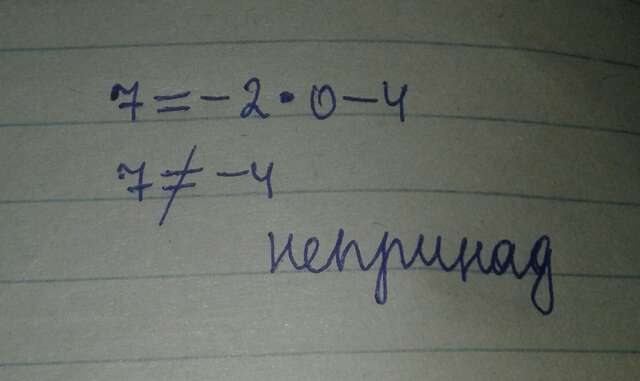 7=-2•0-4
7≠-4
непринад